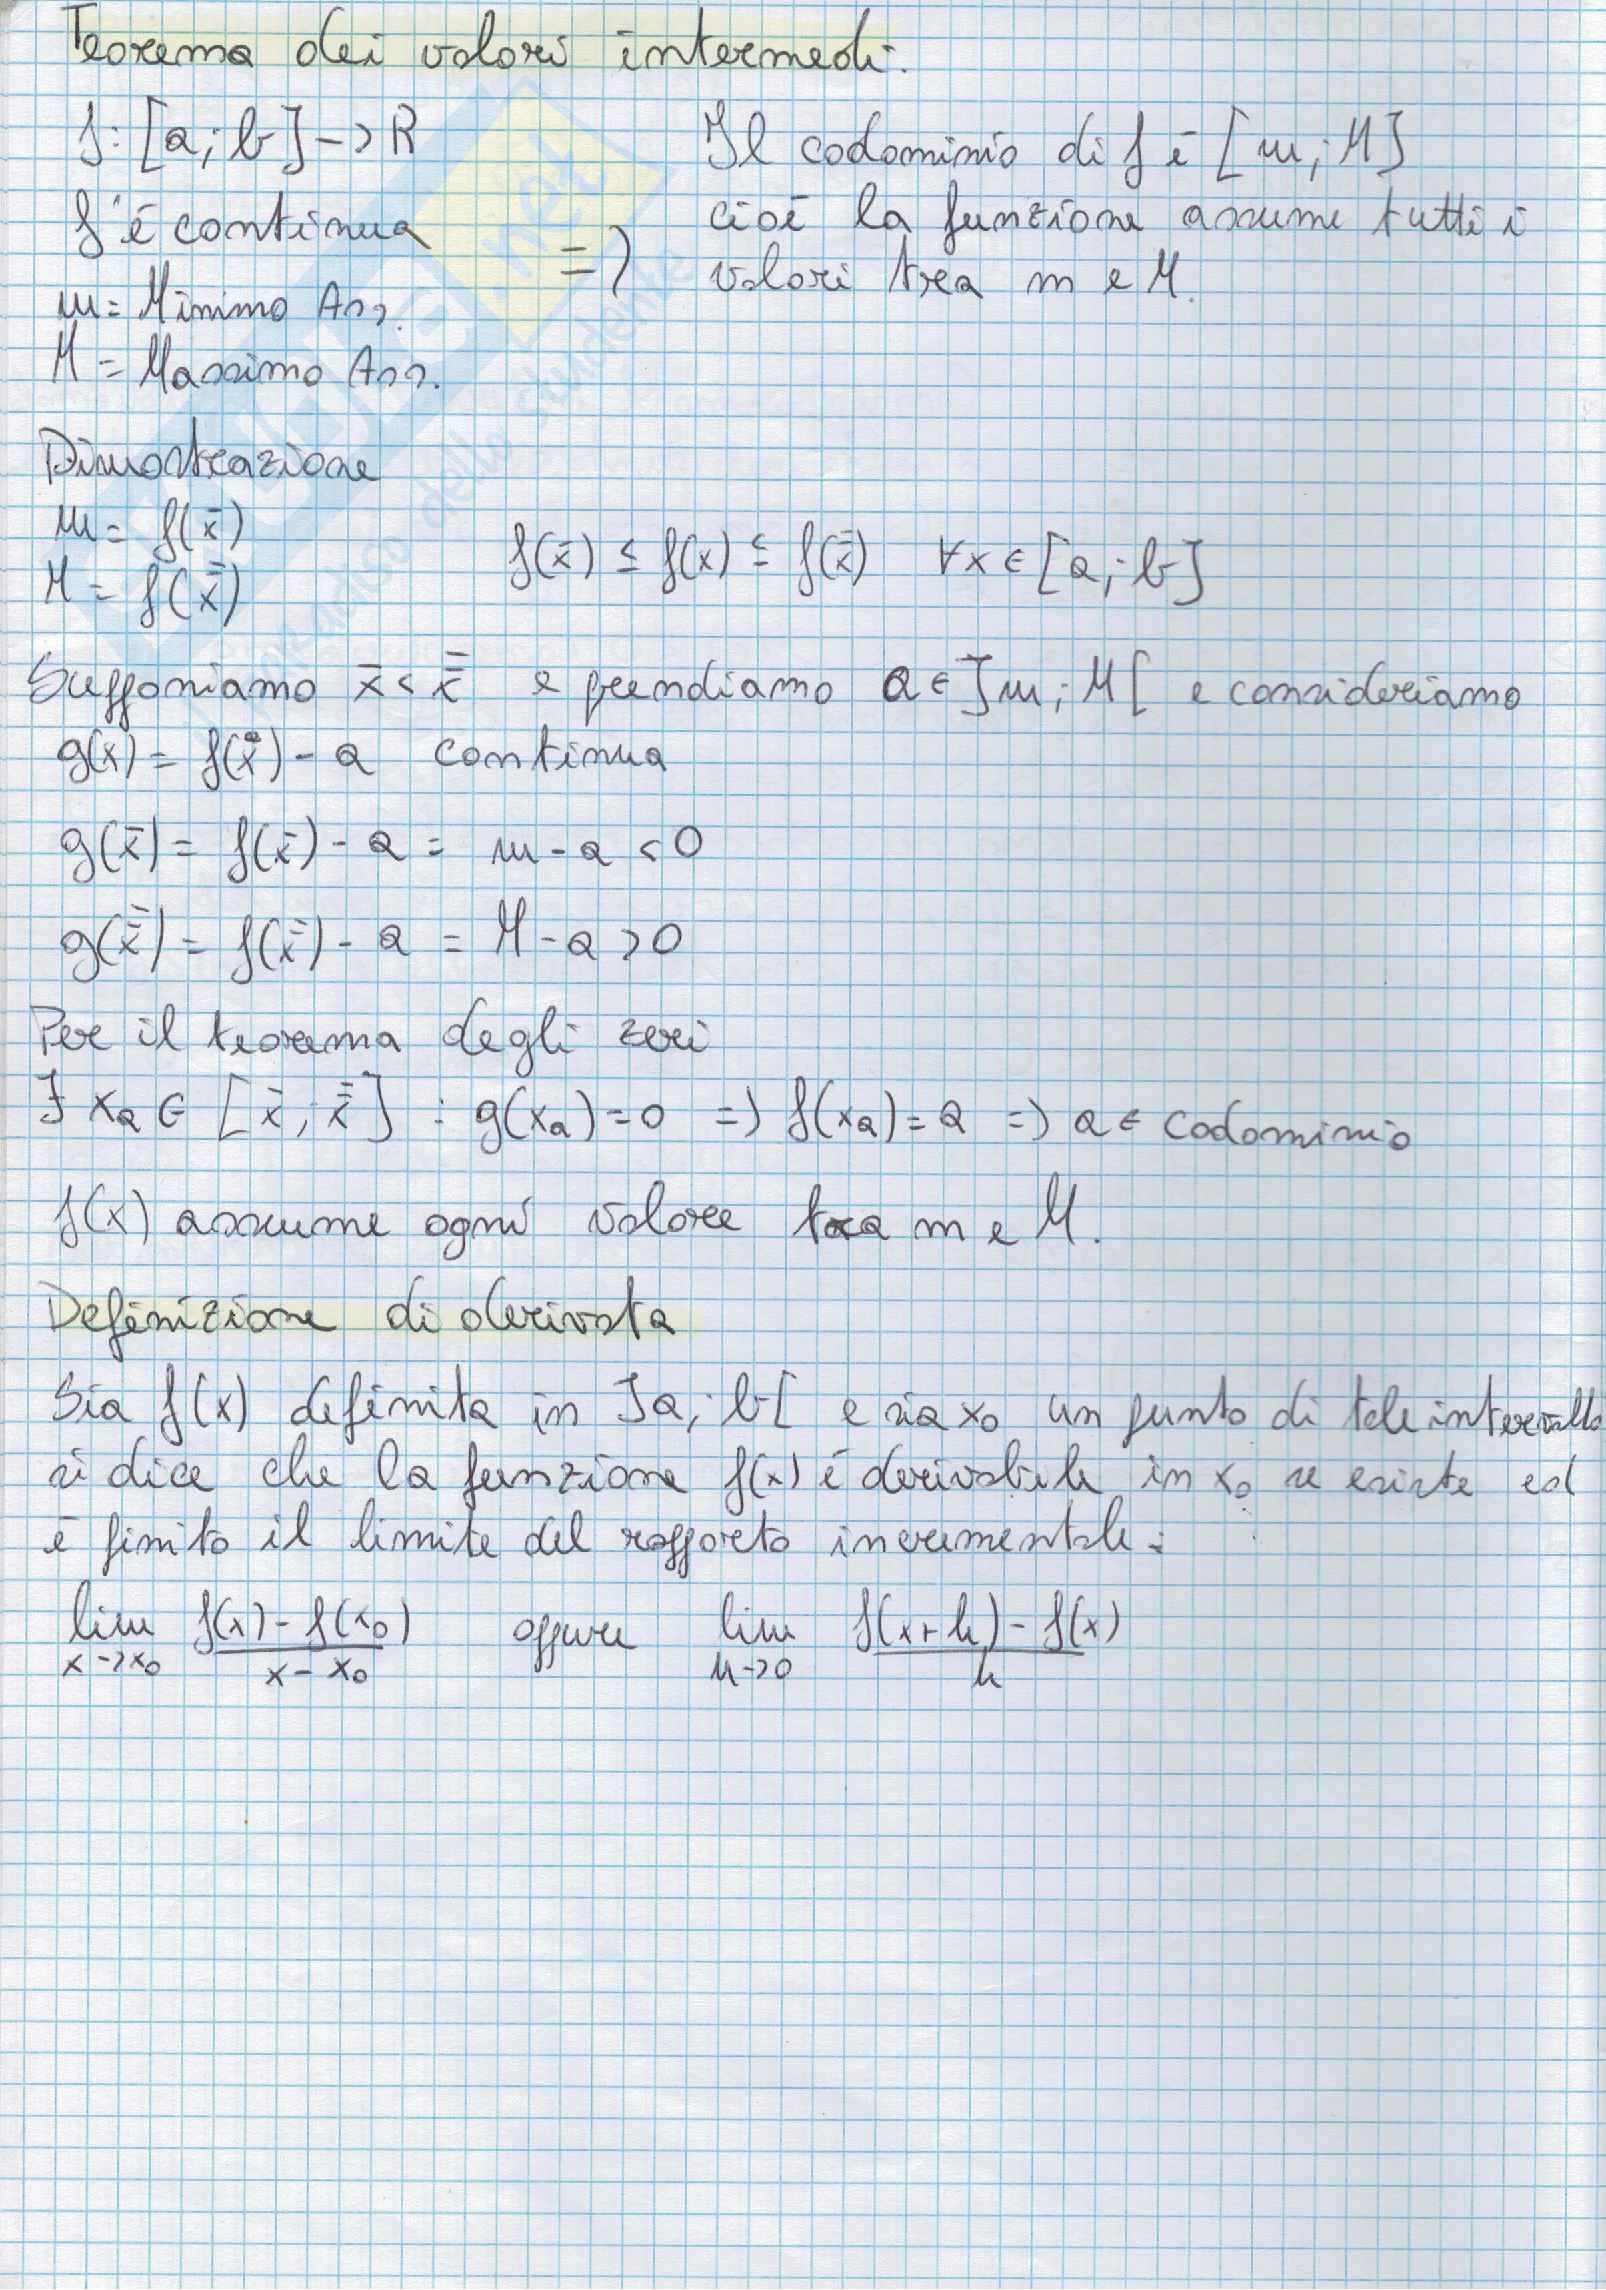 Teorema dei valori intermedi.
f: [a; b] -> R
f è continua
m = Minimo Ass.
M = Massimo Ass.
=>
Il codominio di f è [m; M]
cioè la funzione assume tutti i
valori tra m e M.
Dimostrazione
m = f(x̄)
M = f(x̿)
f(x̄) ≤ f(x) ≤ f(x̿) ∀x ∈ [a; b]
Supponiamo x̄ < x̿ e prendiamo a ∈ ]m; M[ e consideriamo
g(x) = f(x) - a continua
g(x̄) = f(x̄) - a = m - a < 0
g(x̿) = f(x̿) - a = M - a > 0
Per il teorema degli zeri
∃ xₐ ∈ [x̄; x̿] : g(xₐ) = 0 => f(xₐ) = a => a ∈ codominio
f(x) assume ogni valore tra m e M.
Definizione di derivata
Sia f(x) definita in ]a; b[ e sia x₀ un punto di tale intervallo
si dice che la funzione f(x) è derivabile in x₀ se esiste ed
è finito il limite del rapporto incrementale:
lim x->x₀ (f(x) - f(x₀)) / (x - x₀) oppure lim h->0 (f(x+h) - f(x)) / h